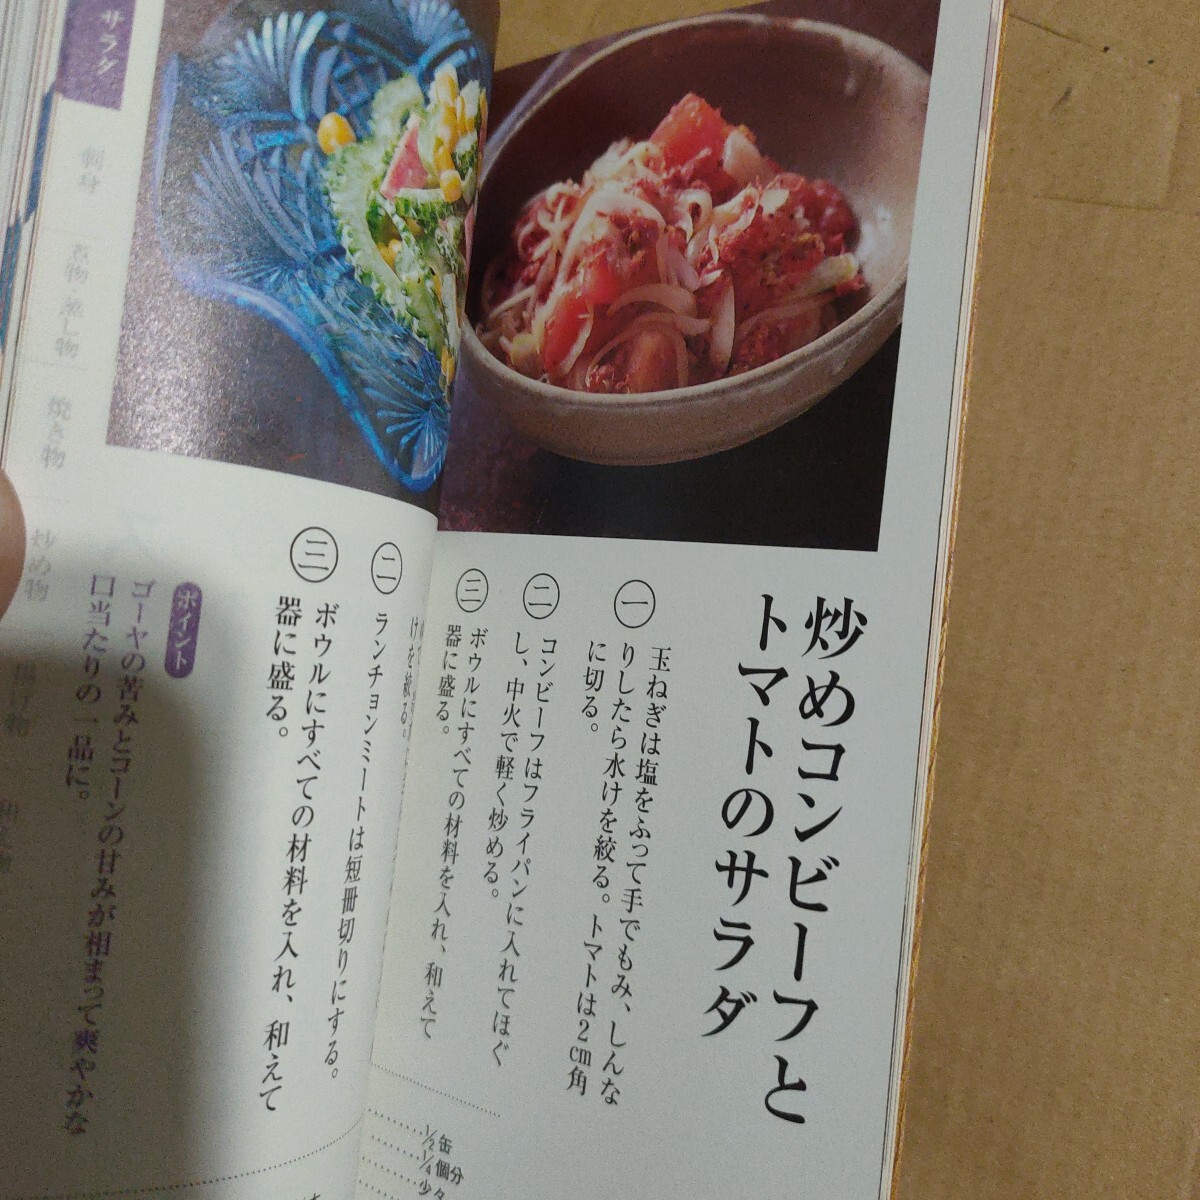 炒めコンビーフと
トマトのサラダ
㊀
玉ねぎは塩をふって手でもみ、しんな
りしたら水けを絞る。トマトは2cm角
に切る。
㊁
コンビーフはフライパンに入れてほぐ
し、中火で軽く炒める。
㊂
ボウルにすべての材料を入れ、和えて
器に盛る。
1/2缶
1/4個分
少々
けを絞る。
㊁
ランチョンミートは短冊切りにする。
㊂
ボウルにすべての材料を入れ、和えて
器に盛る。
ポイント
ゴーヤの苦みとコーンの甘みが相まって爽やかな
口当たりの一品に。
サラダ
刺身
煮物・蒸し物
焼き物
炒め物
揚げ物